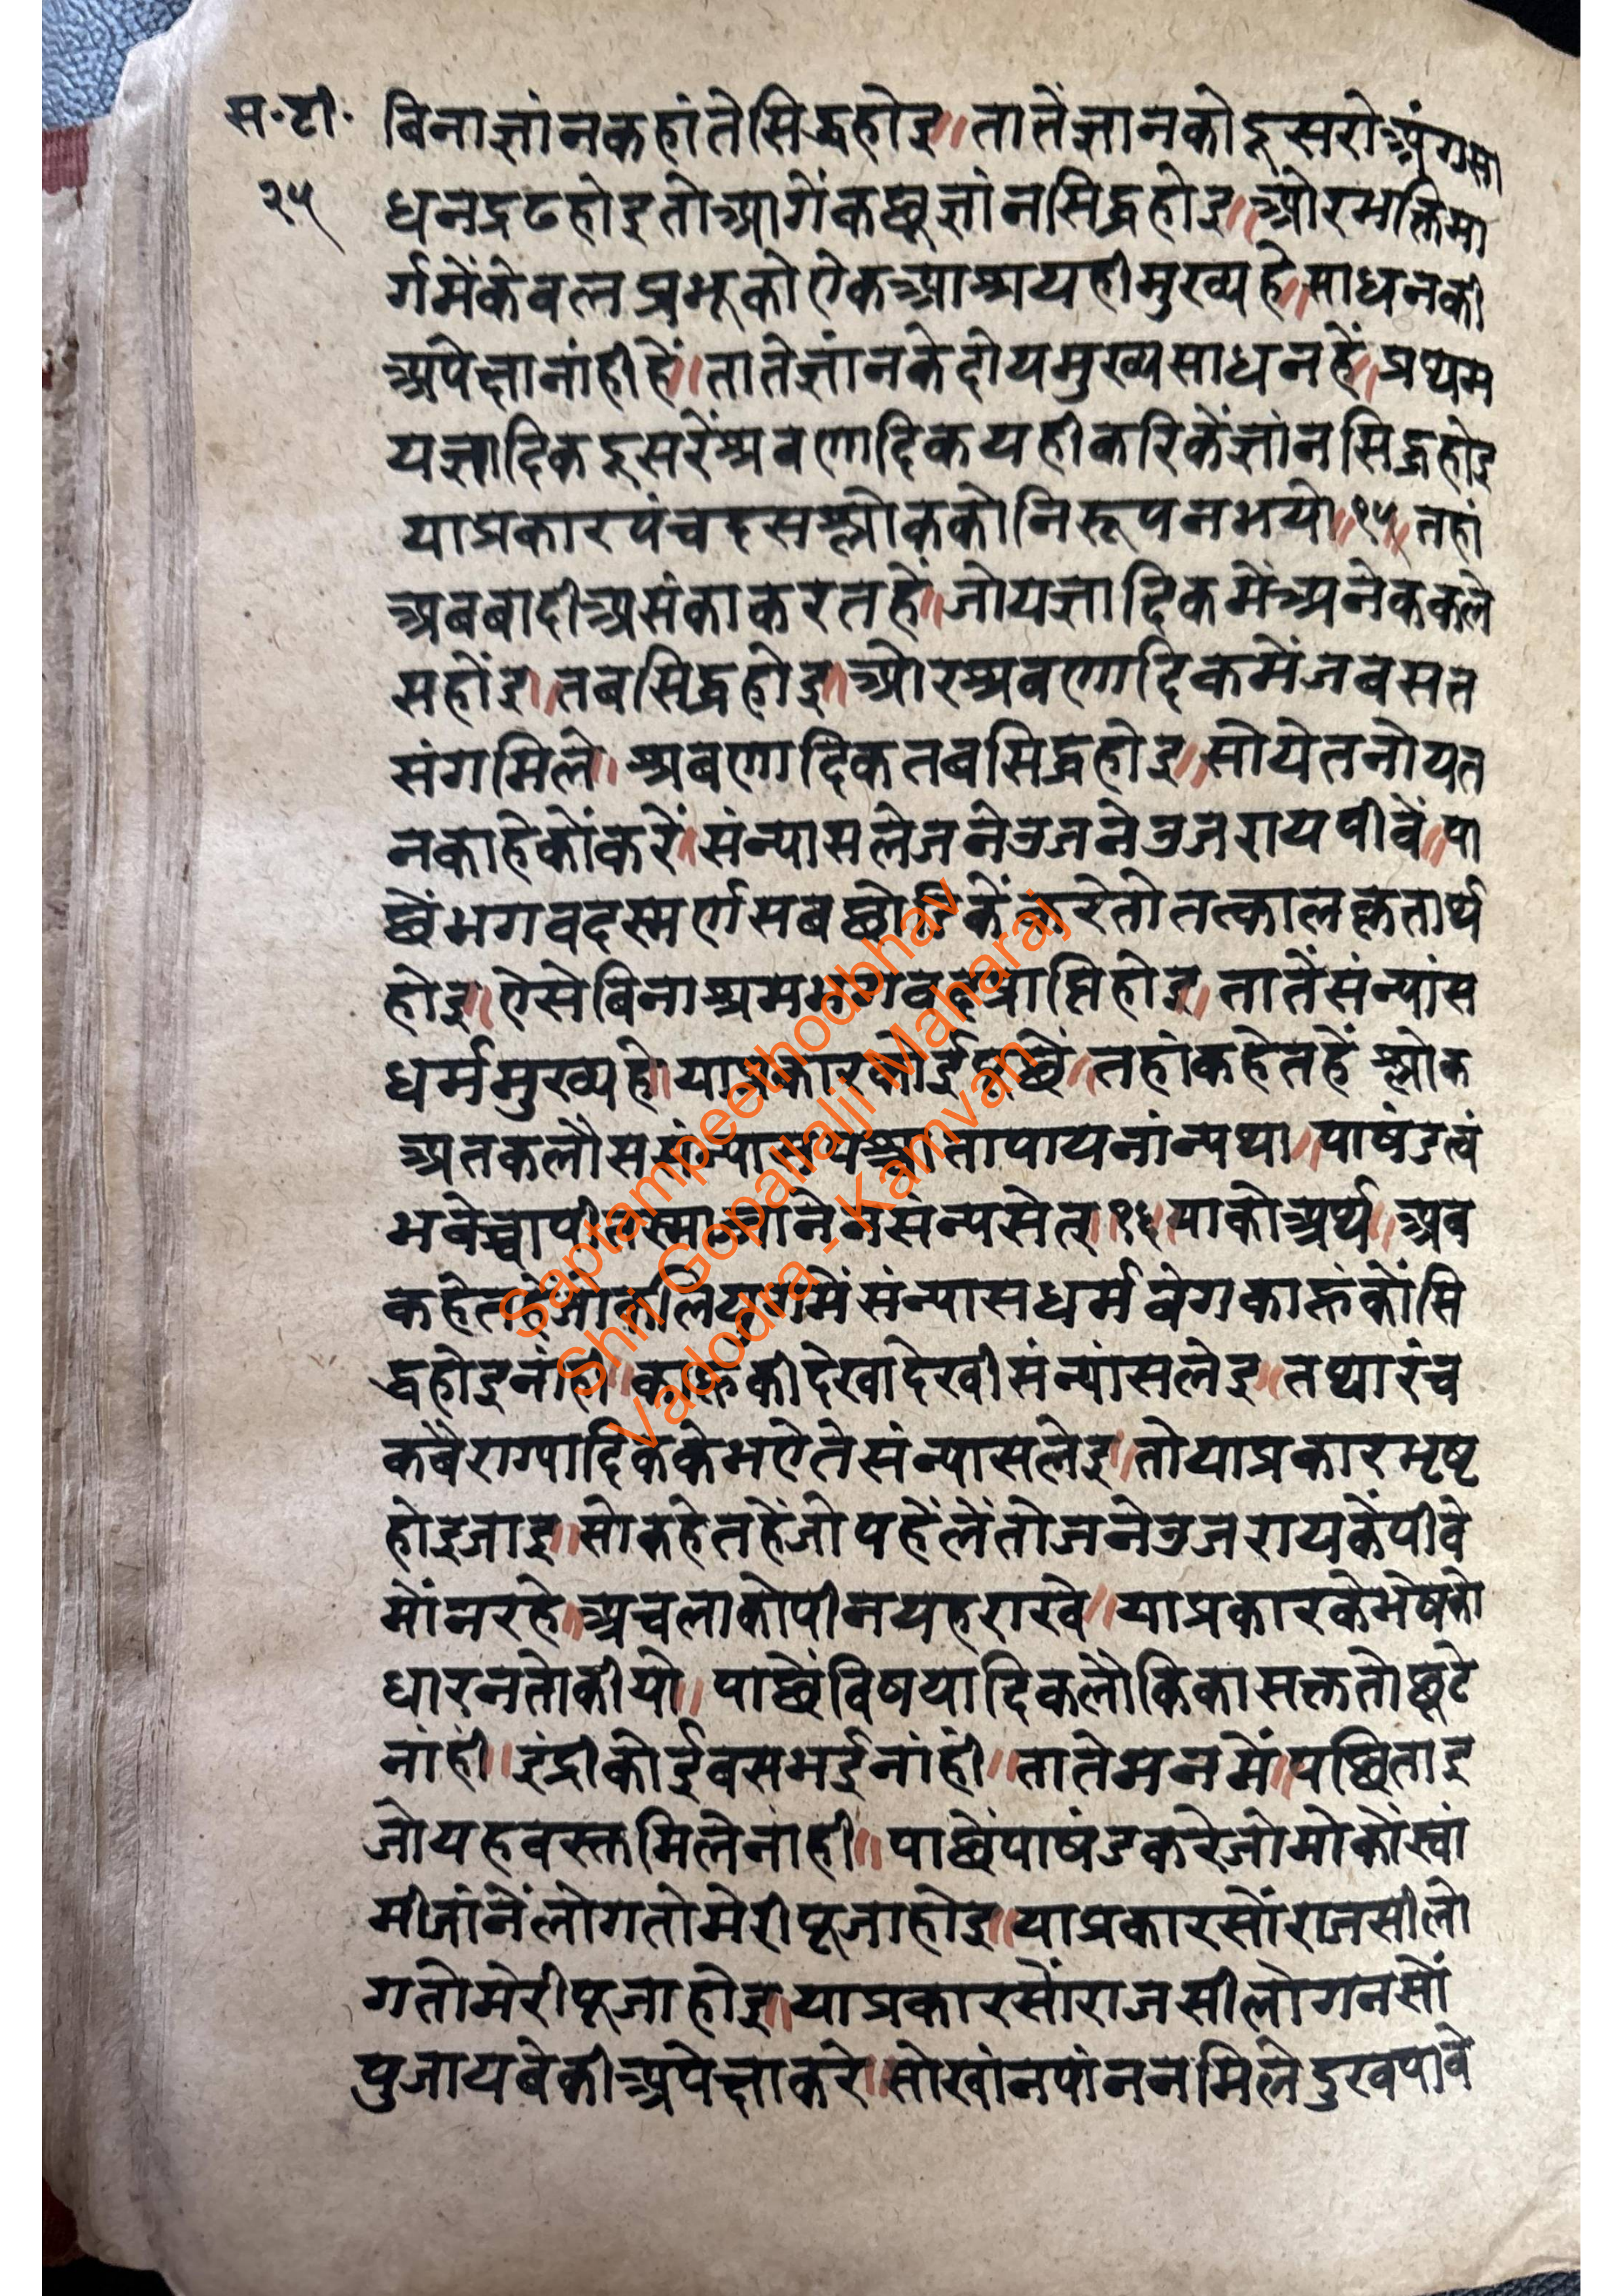 स॰टी॰ बिनाज्ञांनकहांतेसिद्धहोइ॥तातेंज्ञानकोदूसरोअंगसा
२५ धनद्रढहोइतोआगेंकछूज्ञांनसिद्धहोइ॥ओरभक्तिमा
र्गमेंकेवलप्रभूकोऐकआश्रयहीमुख्यहे॥साधनकी
अपेक्षानांहीहें॥तातेज्ञांनकेदोयमुख्यसाधनहें॥प्रथम
यज्ञादिकदूसरेंश्रवणादिकयहीकरिकेंज्ञांनसिद्धहोइ
याप्रकारपंचदसश्लोककोनिरूपनभयो॥१५॥तहां
अबबादीअसंकाकरतहें॥जोयज्ञादिकमेंअनेककले
सहोंइ॥तबसिद्धहोइ॥ओरश्रवणादिकमेंजबसत
संगमिले॥श्रबणादिकतबसिद्धहोइ॥सोयेतनोयत
नकाहेकोंकरें॥संन्यासलेजनेउजनेउजरायपीवें॥पा
छेंभगवदस्मर्णसबछोडिकेंकरेतोतत्कालकृतार्थ
होइ॥ऐसेबिनाश्रमभगवदप्राप्तिहोइ॥तातेंसंन्यांस
धर्ममुख्यहे॥याप्रकारकोईपूछें॥तहांकहेतहें श्लोक
अतकलौससंन्यासपश्चातापायनांन्यथा॥पाषंडत्वं
भवेच्चापीतस्माज्ज्ञानेनसंन्यसेत्॥१६॥याकोअर्थ॥अब
कहेतहेंजोकलियुगमेंसंन्यासधर्मवेगकाहूंकोंसि
द्धहोइनांही॥काहूकीदेखादेखीसंन्यांसलेइ॥तथारंच
कबैराग्यादिककेभऐतेसंन्यासलेइ॥तोयाप्रकारभृष्ट
होइजाइ॥सोकहेतहेंजोपहेंलेंतोजनेउजरायकेंपीवे
मोंनरहे॥अचलाकोपीनयहराखे॥याप्रकारकेभेषको
धारनतोकीयो॥पाछेंविषयादिकलौकिकासक्ततोछूटे
नांही॥इंद्रीकोईवसभईनांही॥तातेमनमें॥पछिताइ
जोयहवस्तमिलेनांही॥पाछेंपाषंडकरेजोमोकोंस्वां
मीजांनेंलोगतोमेरीपूजाहोइ॥याप्रकारसोंराजसीलो
गतोमेरीपूजाहोइ॥याप्रकारसोंराजसीलोगनसों
पुजायबेकीअपेक्षाकरे॥सोखांनपांननमिलेदुखपावे
Saptampeethodbhav
Shri Gopallalji Maharaj
Vadodra - Kamvan